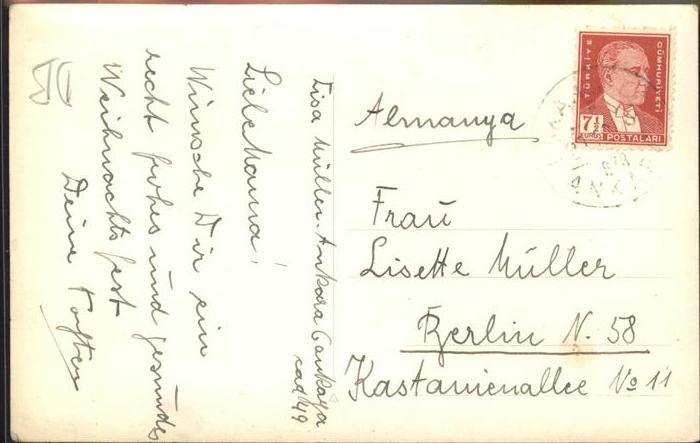 Liebe Mama!
Wünsche Dir ein
recht frohes und gesundes
Weihnachtsfest
Deine
Lisa Müller. Ankara Cankaya
cad 49
Almanya
Frau
Lisette Müller
Berlin N. 58
Kastanienallee No 11
TÜRKİYE CÜMHURİYETİ
7½
KURUŞ POSTALARI
ANKARA